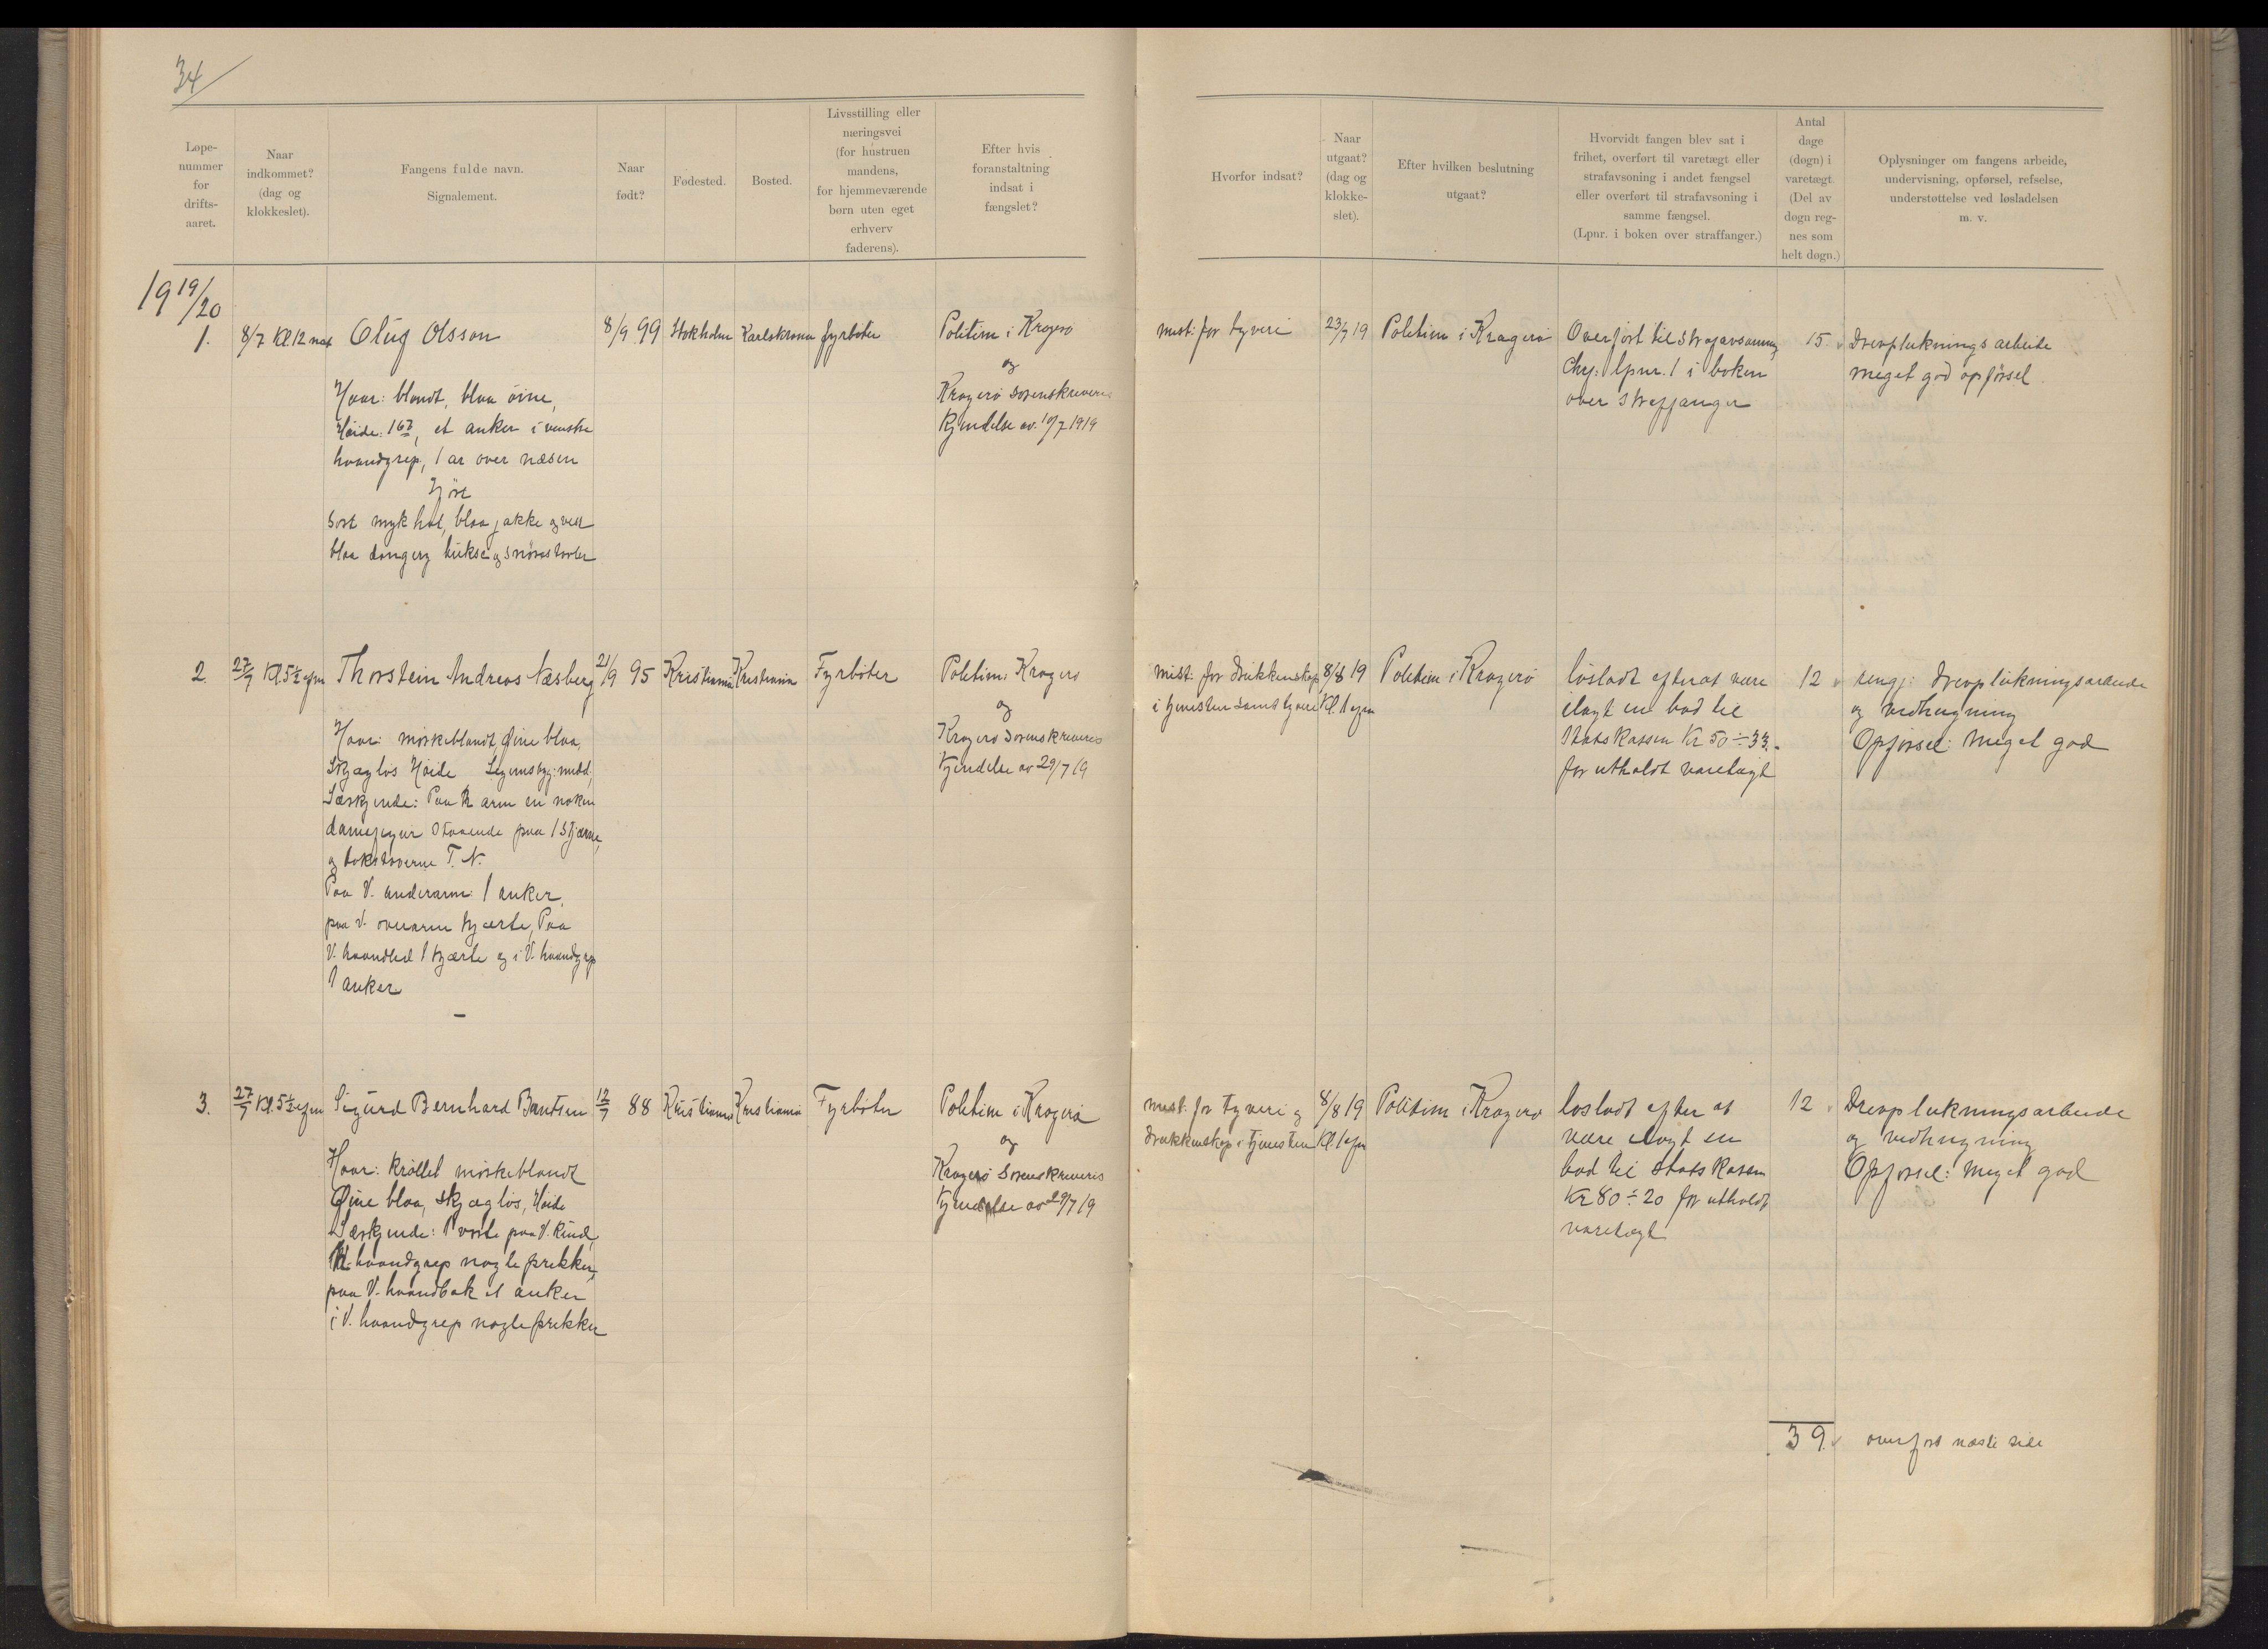 34
Løpe-
nummer
for
drifts-
aaret.
Naar
indkommet?
(dag og
klokkeslet).
Fangens fulde navn.
Signalement.
Naar
født?
Fødested.
Bosted.
Livsstilling eller
næringsvei
(for hustruen
mandens,
for hjemmeværende
børn uten eget
erhverv
faderens).
Efter hvis
foranstaltning
indsat i
fængslet?
Hvorfor indsat?
Naar
utgaat?
(dag og
klokke-
slet).
Efter hvilken beslutning
utgaat?
Hvorvidt fangen blev sat i
frihet, overført til varetægt eller
strafavsoning i andet fængsel
eller overført til strafavsoning i
samme fængsel.
(Lpnr. i boken over straffanger.)
Antal
dage
(døgn) i
varetægt
(Del av
døgn reg-
nes som
helt døgn.)
Oplysninger om fangens arbeide,
undervisning, opførsel, refselse,
understøttelse ved løsladelsen
m. v.
1919/20
1.
8/7 Kl 12 nat
Oluf Olsson
Haar: blondt, blaa øine,
Høide: 167, et anker i venstre
haandgrep, 1 ar over næsen
Iført
Sort myk hat, blaa jakke og vest
blaa dongery bukse og snørestøvler
8/9 99
Stokholm
Karlskrona
fyrbøter
Politim i Kragerø
og
Kragerø Sorenskriveris
Kjendelse av 10/7 1919
mist. for tyveri
23/7 19
Politim i Kragerø
Overført til strafavsoning
Chf: lpnr. 1 i boken
over straffanger
15
Drevplukningsarbeide
meget god opførsel
2.
27/7 Kl. 5½ efm
Thorstein Andreas Næsberg
Haar: mørkeblondt, Øine blaa,
Skjægløs Høide Legemsbyg: midd.
Særkjende: Paa h arm en naken
damefigur staaende paa 1 stjærne,
og bokstaverne T. N.
Paa V. underarm: 1 anker,
paa V. overarm hjærte, Paa
V. haandled 1 hjærte og i V. haandgrep
1 anker
21/9 95
Kristiania
Kristiania
Fyrbøter
Politim i Kragerø
og
Kragerø Sorenskriveris
Kjendelse av 29/7 19
mist. for drukkenskap
i tjenesten samt tyveri
8/8 19
Kl. 1 efm
Politim i Kragerø
løsladt efter at være
ilagt en bod til
Statskassen Kr 50 ÷ 33.
for utholdt varetægt
12
rengj: drevplukningsarbeide
og vedhugning
Opførsel: Meget god
3.
27/7 Kl. 5½ efm
Sigurd Bernhard Berntsen
Haar: krøllet mørkeblondt
Øine blaa, skjægløs, Høide
Særkjende: 1 vorte paa V. kind,
H. haandgrep nogle prikker,
paa V. haandbak et anker
i V. haandgrep nogle prikker
12/7 88
Kristiania
Kristiania
Fyrbøter
Politim i Kragerø
og
Kragerø Sorenskriveris
Kjendelse av 29/7 19
mist. for tyveri og
drukkenskap i tjenesten
8/8 19
Kl. 1 efm
Politim i Kragerø
løsladt efter at
være ilagt en
bod til statskassen
Kr 80 ÷ 20 for utholdt
varetægt
12
Drevplukningsarbeide
og vedhugning
Opførsel: Meget god
39.
overført næste side